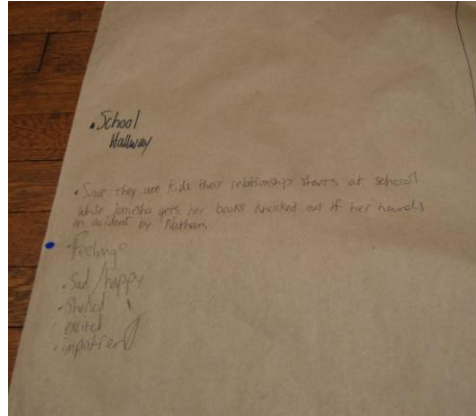 • School
Hallway
• Since they are kids their relationship starts at school
while gets her books knocked out of her hands
on accident by Nathan.
Feelings
• Sad / happy
• 
excited
• impatient